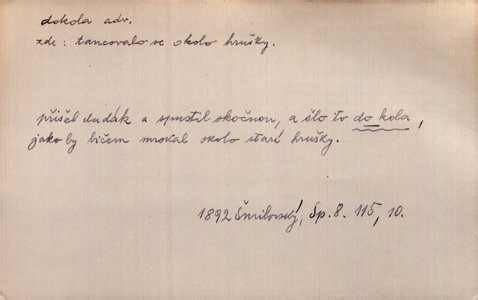 dokola adv.
zde: tancovalo se okolo hrušky.
přišel dudák a spustil skočnou, a šlo to do kola,
jako by bičem mrskal okolo staré hrušky.
1892 Šmilovský, Sp. 8. 115, 10.